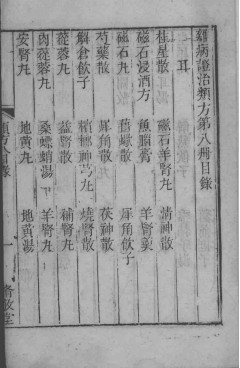 雜病證治類方第八冊目錄
耳
桂星散 磁石羊腎丸 清神散
磁石浸酒方 魚腦膏 羊腎羹
磁石丸 散 犀角飲子
芍藥散 犀角散 茯神散
解倉飲子 檳榔神丸 燒腎散
蓯蓉丸 益腎散 補腎丸
肉蓯蓉丸 桑螵蛸湯 羊腎丸
安腎丸 地黃丸 地黃湯
類方 目錄 一